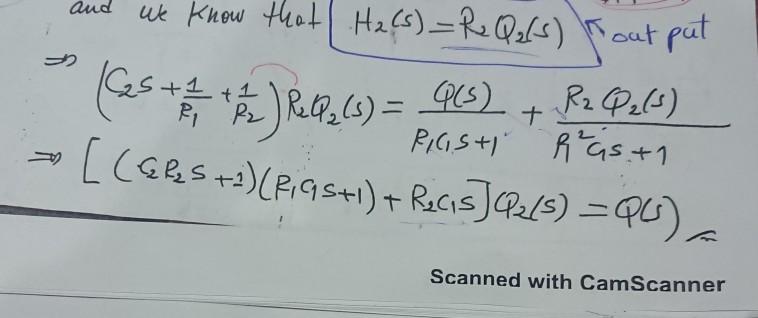 and we know that H₂(s) = R₂Q₂(s) ↖ out put
⇒ (C₂s + 1/R₁ + 1/R₂) R₂Q₂(s) = Q(s)/(R₁C₁s+1) + R₂Q₂(s)/(R₁²C₁s+1)
⇒ [(C₂R₂s+1)(R₁C₁s+1) + R₂C₁s] Q₂(s) = Q(s)
Scanned with CamScanner